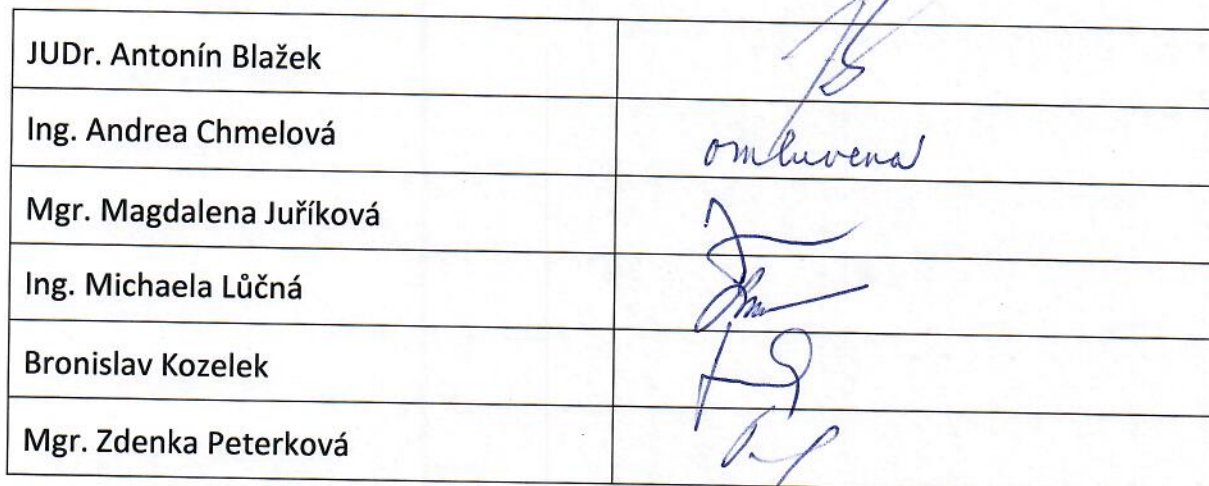 JUDr. Antonín Blažek
Ing. Andrea Chmelová omluvena
Mgr. Magdalena Juříková
Ing. Michaela Lůčná
Bronislav Kozelek
Mgr. Zdenka Peterková